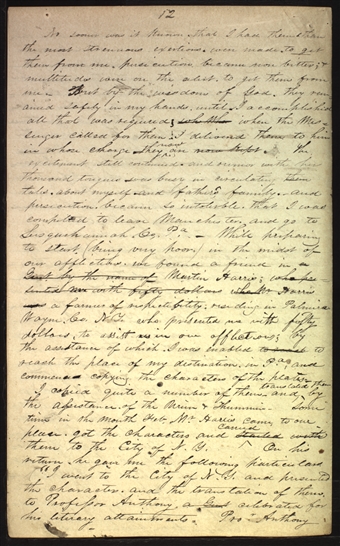 12
No sooner was it known that I had them than
the most strenuous exertions were made to get
them from me. persecution became more bitter, &
multitudes were on the alert to get them from
me. But by the wisdom of God, they rem
ained safely in my hands, until I accomplished
all that was required; when the Mes-
senger called for them I delivered them to him
in whose charge they are The
excitement still continued and rumor with her
thousand tongues was busy in circulating
tales about myself and fathers family, and
persecution became so intolerable that I was
compelled to leave Manchester, and go to
Susquehannah Co; Pa - While preparing
to start, (being very poor) in the midst of
our afflictions we found a friend in a
Gent by the name of Martin Harris;
dollars Mr Harris
a farmer of respectability, residing in Palmira
Wayne Co N.Y. who presented us with fifty
dollars, to assist us in our afflictions; By
the assistance of which I was enabled to
reach the place of my destination, in Pa, and
commenced copying the characters of the plates
I copied quite a number of them, and translated them by
the assistance of the Urim & Thummim. Some
time in the month Feb, Mr Harris came to our
place, got the characters and
Carried
them to the City of N. Y. On his
return he gave me the following particulars
"I went to the City of N. Y. and presented
the characters, and the translation of them
to Professor Anthony, a Gent celebrated for
his literary attainments. Pro Anthony